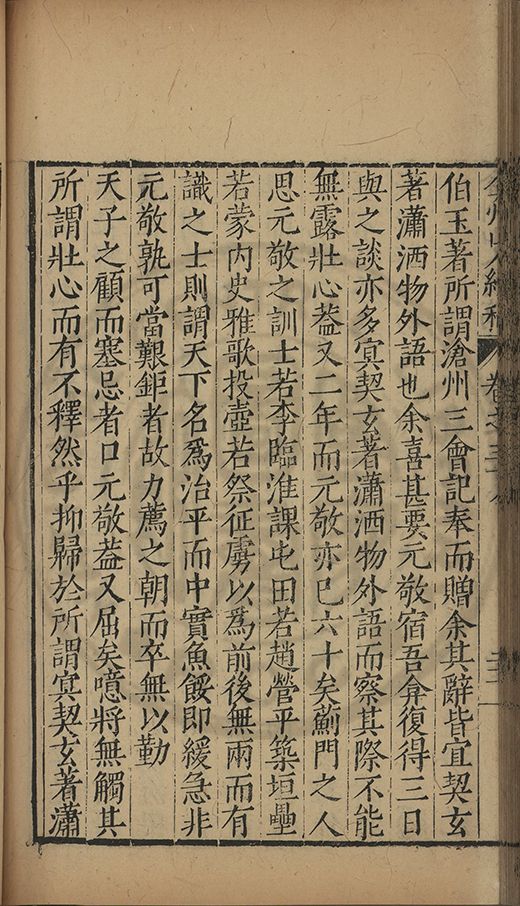 弇州山人續稿 卷之三
伯玉著所謂滄州三會記奉而贈余其辭皆㝠契玄
著瀟洒物外語也余喜甚要元敬宿吾弇復得三日
與之談亦多㝠契玄著瀟洒物外語而察其際不能
無露壯心葢又二年而元敬亦巳六十矣薊門之人
思元敬之訓士若李臨淮課屯田若趙營平築垣壘
若蒙內史雅歌投壺若祭征虜以爲前後無兩而有
識之士則謂天下名爲治平而中實魚餒即緩急非
元敬孰可當艱鉅者故力薦之朝而卒無以勤
天子之顧而塞忌者口元敬葢又屈矣噫將無觸其
所謂壯心而有不釋然乎抑歸於所謂㝠契玄著瀟